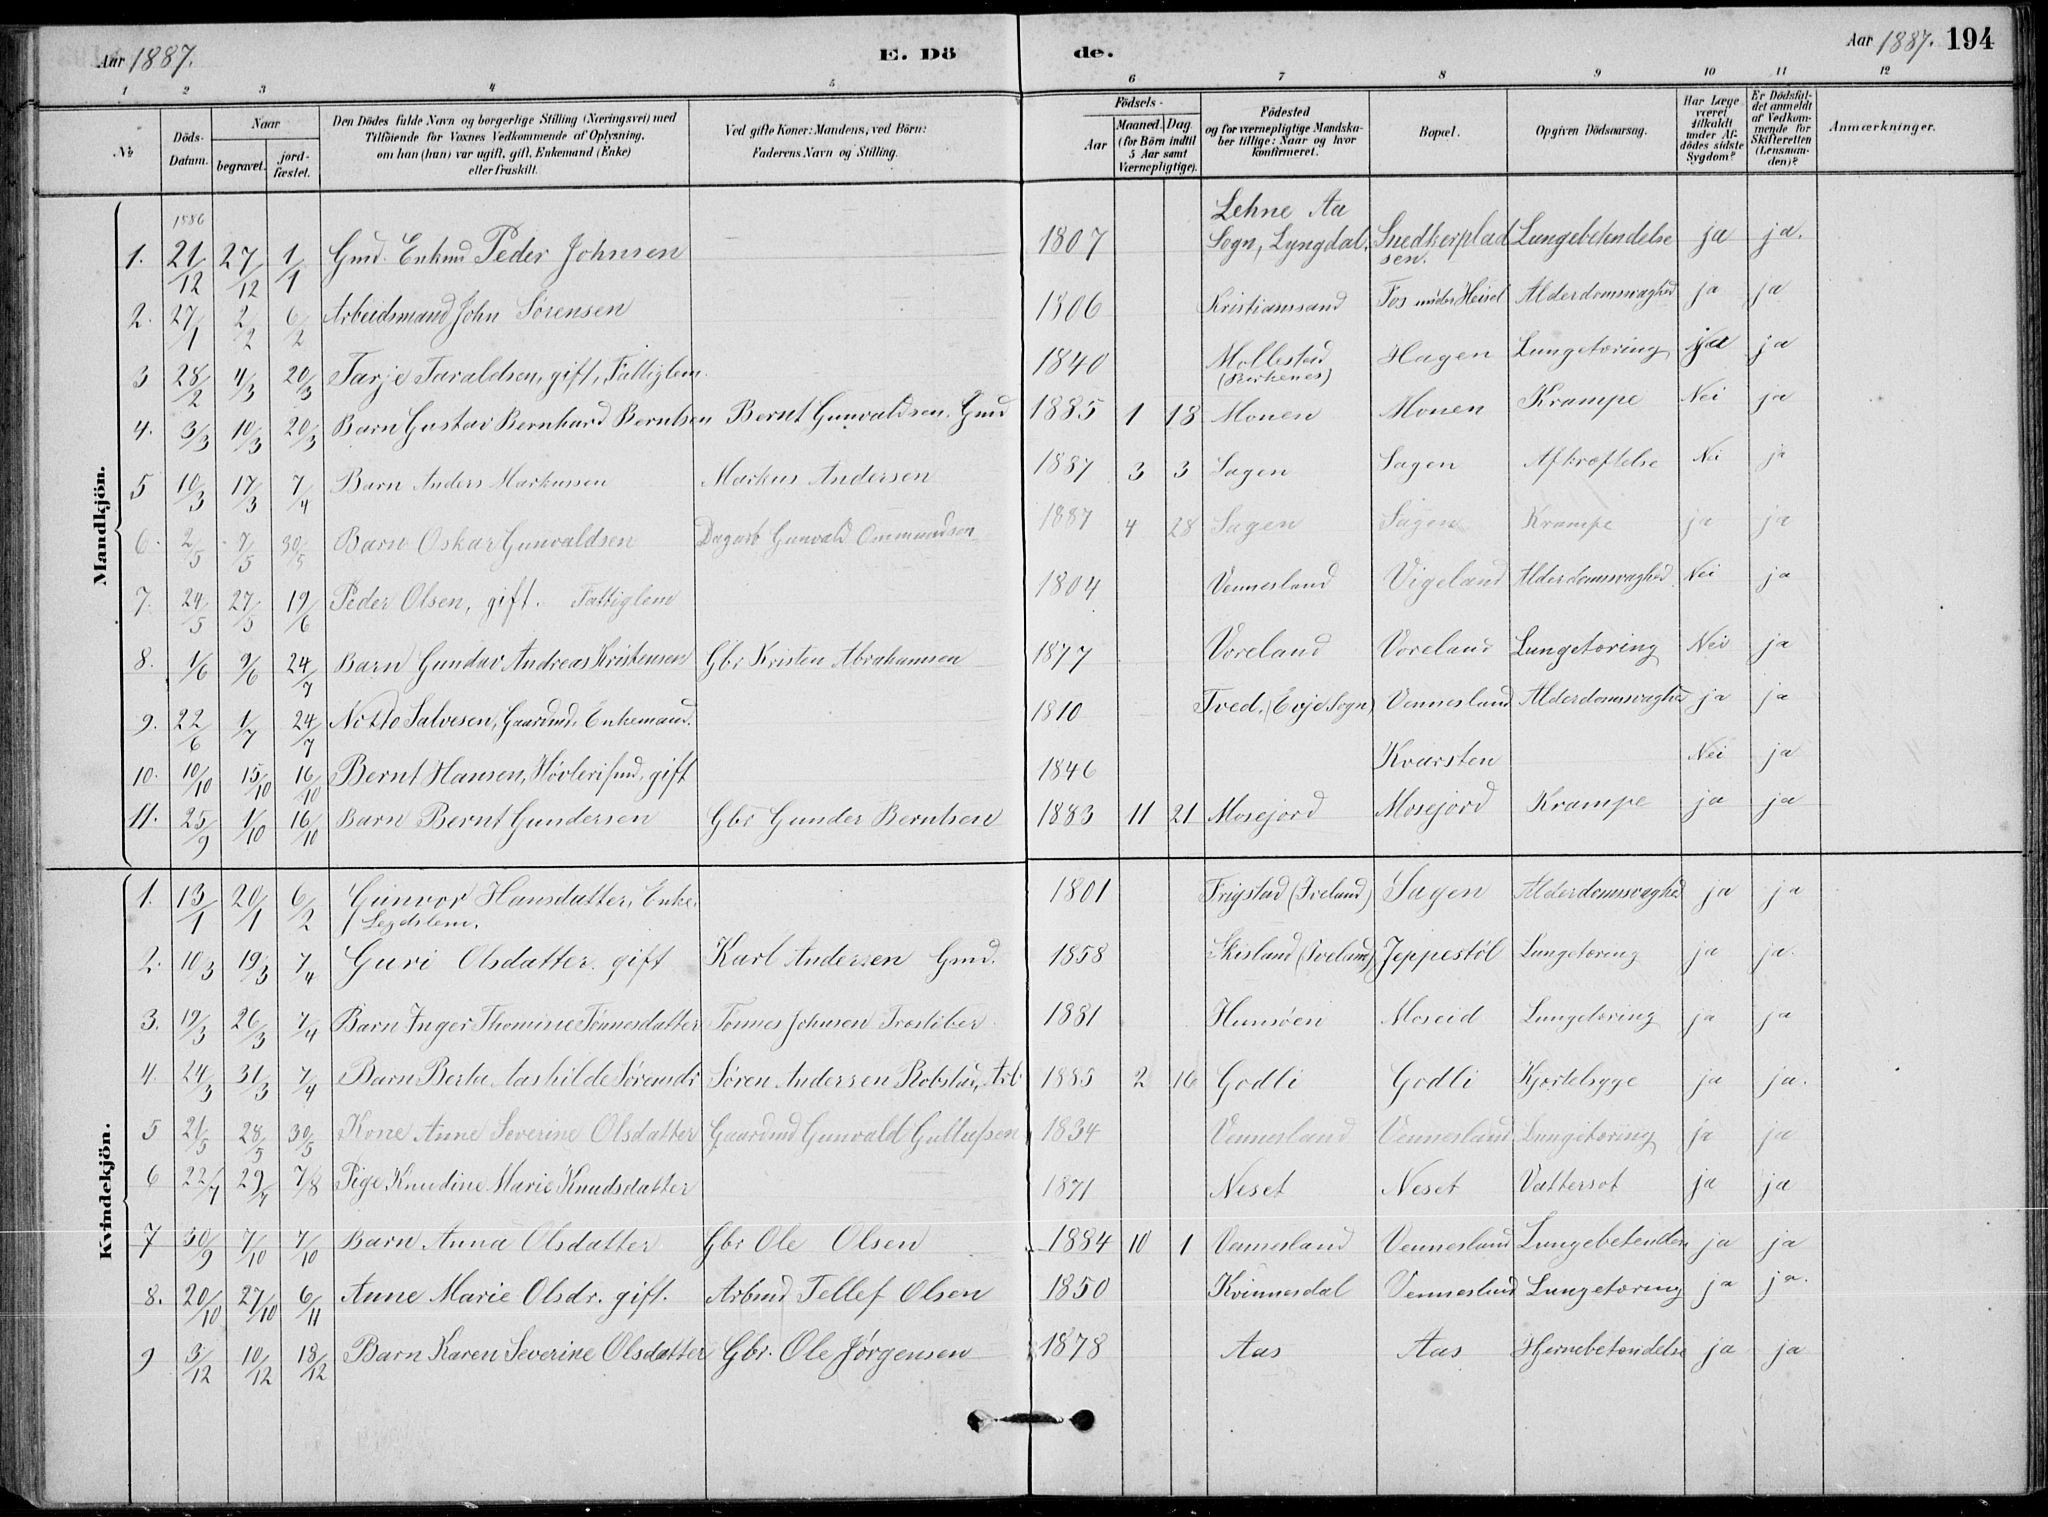 Aar 1887. E. Dö de. Aar 1887. 194
1 2 3 4 5 6 7 8 9 10 11 12
№ Döds-Datum. Naar begravet. jordfæstet. Den Dödes fulde Navn og borgerlige Stilling (Næringsvei) med Tilföiende for Voxnes Vedkommende af Oplysning, om han (hun) var ugift, gift, Enkemand (Enke) eller fraskilt. Ved gifte Koner: Mandens, ved Börn: Faderens Navn og Stilling. Födsels- Aar Maaned. Dag. (for Börn indtil 5 Aar samt Værnepligtige). Födested og for værnepligtige Mandskaber tillige: Naar og hvor konfirmeret. Bopæl. Opgiven Dödsaarsag. Har Læge været tilkaldt under Afdödes sidste Sygdom? Er Dödsfaldet anmeldt af Vedkommende for Skifteretten (Lensmanden)? Anmærkninger.
Mandkjön.
1886
1. 21/12 27/12 1/1 Gmd. Enkmd Peder Johnsen 1807 Lehne Aa Sogn, Lyngdal. Snedkerpladsen. Lungebetendelse ja ja.
2. 27/1 2/2 6/2 Arbeidsmand John Sørensen 1806 Kristianssand Fos under Heisel Alderdomsvaghed ja ja
3 28/2 4/3 20/3 Tarje Taraldsen, gift, Fattiglem. 1840 Mollestad (Birkenes) Hagen Lungetæring ja ja
4. 3/3 10/3 20/3 Barn Gustav Bernhard Berntsen Bernt Gunvaldsen, Gmd 1885 1 18 Monen Monen Krampe Nei ja
5 10/3 17/3 7/4 Barn Anders Markussen Markus Andersen 1887 3 3 Sagen Sagen Afkræftelse Nei ja
6. 2/5 7/5 30/5 Barn Oskar Gunvaldsen Dagarb Gunvald Ommundsen 1887 4 28 Sagen Sagen Krampe ja ja
7. 24/5 27/5 19/6 Peder Olsen, gift. Fattiglem 1804 Vennesland Vigeland Alderdomsvaghed Nei ja
8. 1/6 9/6 24/7 Barn Gundav Andreas Kristensen Gbr Kristen Abrahamsen 1877 Voreland Voreland Lungetæring Nei ja
9. 22/6 1/7 24/7 Notto Salvesen, Gaardmd. Enkemand. 1810 Tved. (Evje Sogn) Vennesland Alderdomsvaghed ja ja
10. 10/10 15/10 16/10 Bernt Hansen, gift 1846 Kvarsten Nei ja
11. 25/9 1/10 16/10 Barn Bernt Gundersen Gbr Gunder Berntsen 1883 11 21 Mosejord Mosejord Krampe ja ja
Kvindekjön.
1. 13/1 20/1 6/2 Gunvor Hansdatter, Enke. Legdslem. 1801 Frigstad (Iveland) Sagen Alderdomsvaghed ja ja
2. 10 3 19/3 7/4 Guri Olsdatter. gift Karl Andersen Gmd. 1858 Skisland (Iveland) Jeppestøl Lungetæring ja ja.
3. 19/3 26/3 7/4 Barn Inger Thomine Tønnesdatter Tønnes Johnsen 1881 Hunsøen Moseid Lungetæring ja ja
4. 24/3 31/3 7/4 Barn Berta Aashilde Sørensdr Søren Andersen Robstad, Arb 1885 2 16 Godli Godli Kjertelsyge ja ja.
5 21/5 28/5 30/5 Kone Anne Severine Olsdatter Gaardmd Gunvald Gullufsen 1834 Vennesland Vennesland Lungetæring ja ja
6 22/7 29/7 7/8 Pige Knudine Marie Knudsdatter 1871 Neset Neset Vattersot ja ja
7 30/9 7/10 7/10 Barn Anna Olsdatter Gbr Ole Olsen 1884 10 1 Vennesland Vennesland Lungebetenden ja ja
8. 20/10 27/10 6/11 Anne Marie Olsdr. gift. Arbmd Tellef Olsen 1850 Kvinnesdal Vennesland Lungetæring ja ja.
9 3/12 10/12 18/12 Barn Karen Severine Olsdatter Gbr. Ole Jørgensen 1878 Aas Aas Hjernebetendelse ja ja